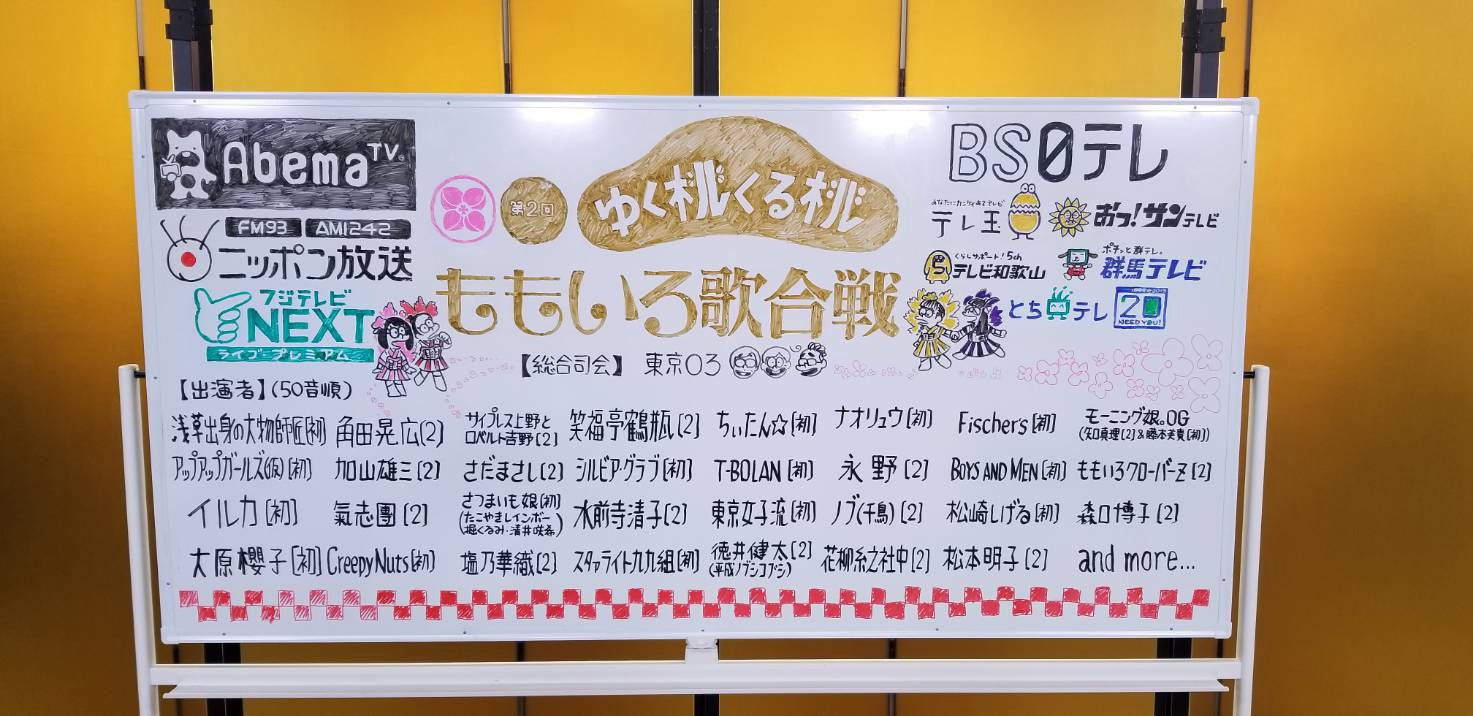 AbemaTV
FM93 AM1242
ニッポン放送
フジテレビ
NEXT
ライブ・プレミアム
第2回
ゆく桃くる桃
ももいろ歌合戦
BS日テレ
テレ玉
おっ!サンテレビ
くらしサポート!5ch
テレビ和歌山
ポチッと群テレ。
群馬テレビ
とちテレ
20
NEED YOU!
【総合司会】 東京03
【出演者】(50音順)
浅草出身の大物師匠[初] 角田晃広[2] サイプレス上野と
ロベルト吉野[2] 笑福亭鶴瓶[2] ちぃたん☆[初] ナオリュウ[初] Fischers[初] モーニング娘。OG
(矢口真理[2]&藤本美貴[初])
アップアップガールズ(仮)[初] 加山雄三[2] さだまさし[2] シルビア・グラブ[初] T-BOLAN[初] 永野[2] BOYS AND MEN[初] ももいろクローバーZ[2]
イルカ[初] 氣志團[2] さつまいも娘[初]
(たこやきレインボー
堀くるみ・清井咲希) 水前寺清子[2] 東京女子流[初] ノブ(千鳥)[2] 松山崎しげる[初] 森口博子[2]
大原櫻子[初] Creepy Nuts[初] 塩乃華織[2] スタァライト九九組[初] 徳井健太[2]
(平成ノブシコブシ) 花柳糸之社中[2] 松本明子[2] and more...